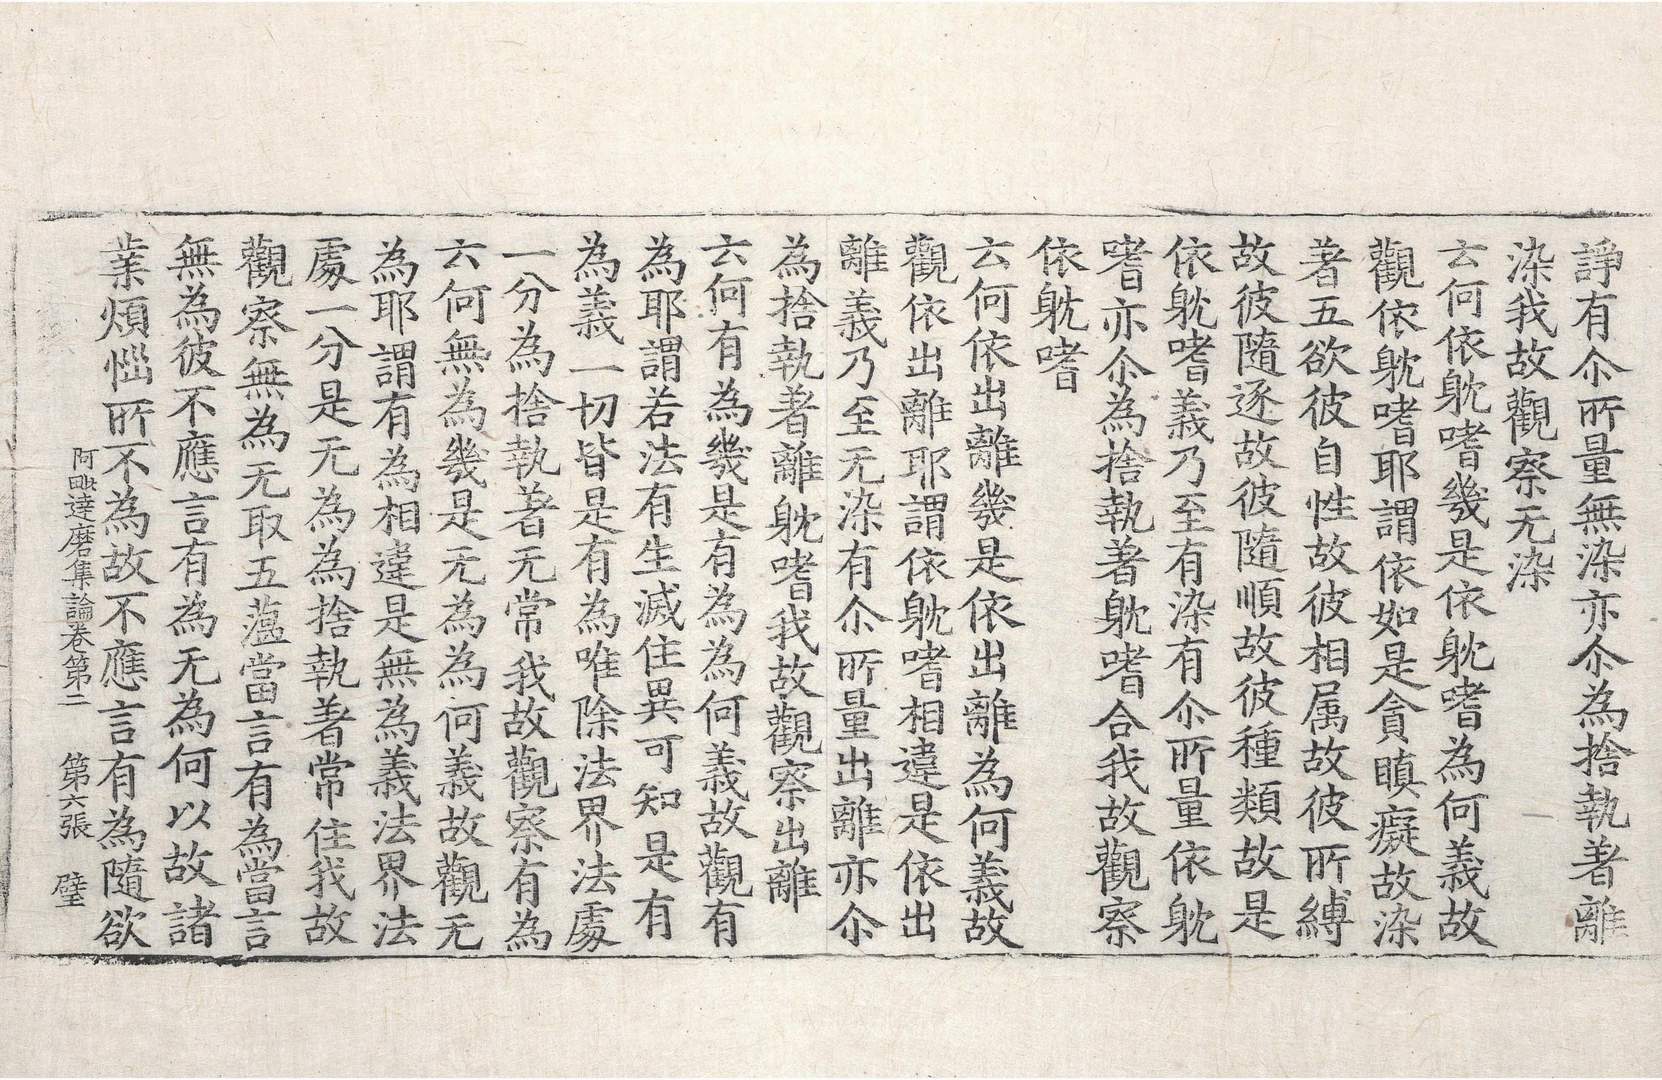 諍有尒所量無染亦尒為捨執著離
染我故觀察无染
云何依躭嗜幾是依躭嗜為何義故
觀依躭嗜耶謂依如是貪瞋癡故染
著五欲彼自性故彼相属故彼所縛
故彼隨逐故彼隨順故彼種類故是
依躭嗜義乃至有染有尒所量依躭
嗜亦尒為捨執著躭嗜合我故觀察
依躭嗜
云何依出離幾是依出離為何義故
觀依出離耶謂依躭嗜相違是依出
離義乃至无染有尒所量出離亦尒
為捨執著離躭嗜我故觀察出離
云何有為幾是有為為何義故觀有
為耶謂若法有生滅住異可知是有
為義一切皆是有為唯除法界法處
一分為捨執著无常我故觀察有為
云何無為幾是无為為何義故觀无
為耶謂有為相違是無為義法界法
處一分是无為為捨執著常住我故
觀察無為无取五蕰當言有為當言
無為彼不應言有為无為何以故諸
業煩惱所不為故不應言有為隨欲
阿毗達磨集論卷第二 第六張 璧